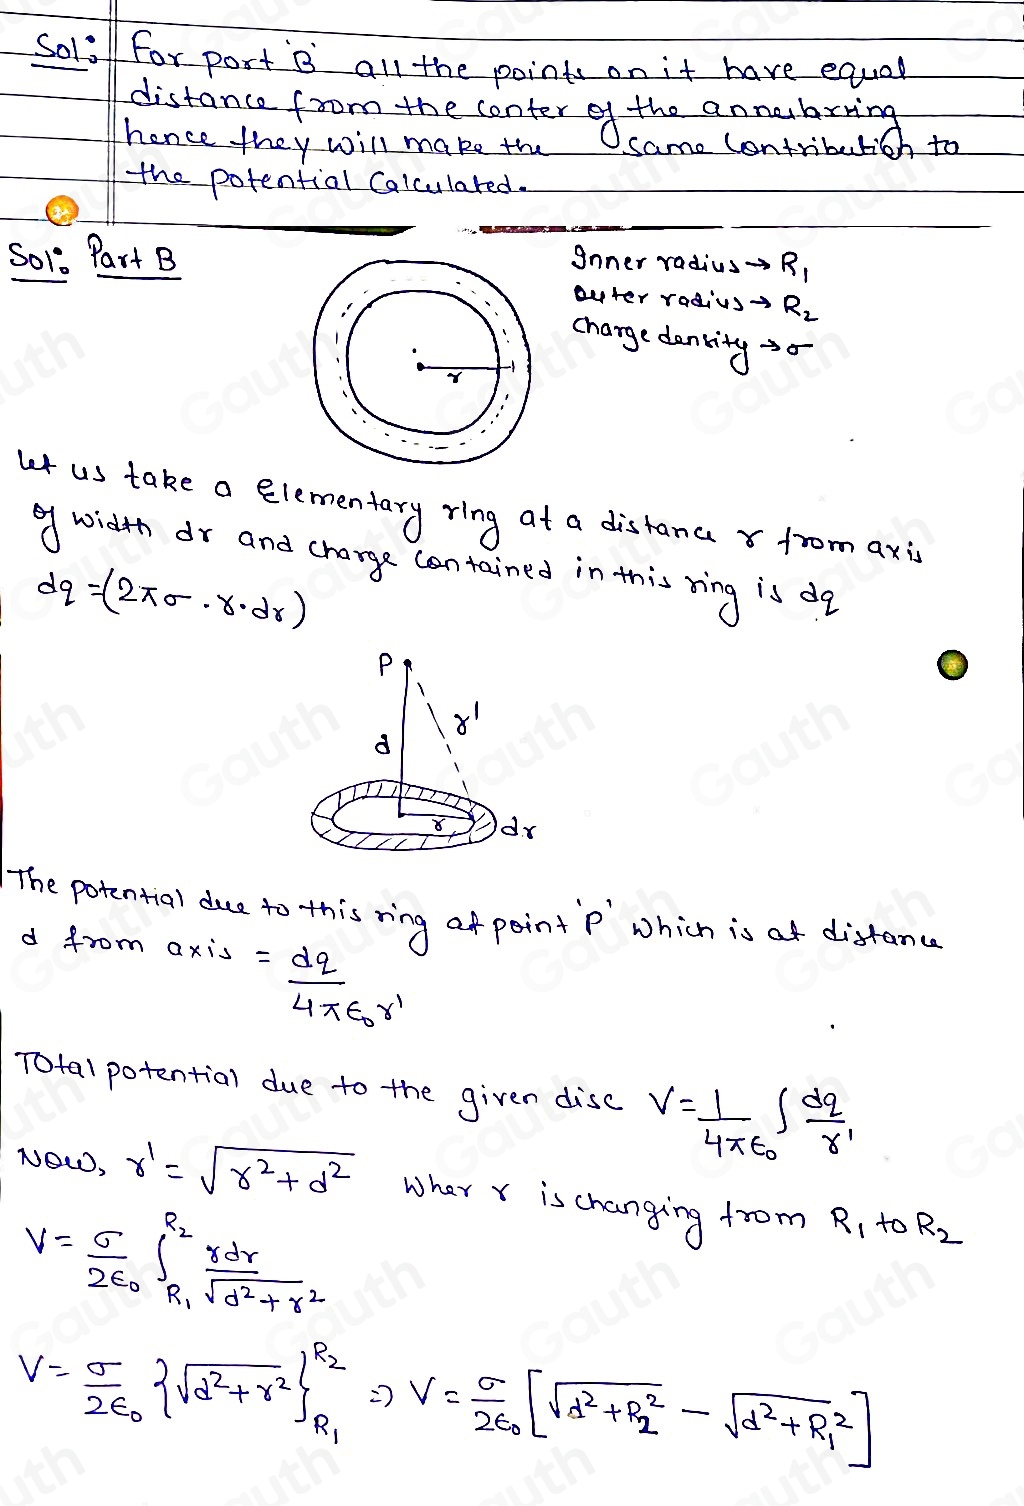 Sol: For part 'B' all the points on it have equal
distance from the center of the annular ring
hence they will make the same contribution to
the potential Calculated.
Sol: Part B
Inner radius → R₁
Outer radius → R₂
Charge density → σ
r
let us take a Elementary ring at a distance r from axis
of width dr and charge contained in this ring is dq
dq = (2πσ . r . dr)
P
d
r'
r
dr
The potential due to this ring at point 'P' which is at distance
d from axis = dq / 4πε₀r'
Total potential due to the given disc V = 1/4πε₀ ∫ dq/r'
Now, r' = √(r² + d²) wher r is changing from R₁ to R₂
V = σ/2ε₀ ∫_{R₁}^{R₂} rdr/√(d² + r²)
V = σ/2ε₀ {√(d² + r²)}_{R₁}^{R₂} ⇒ V = σ/2ε₀ [√(d² + R₂²) − √(d² + R₁²)]
Gauth